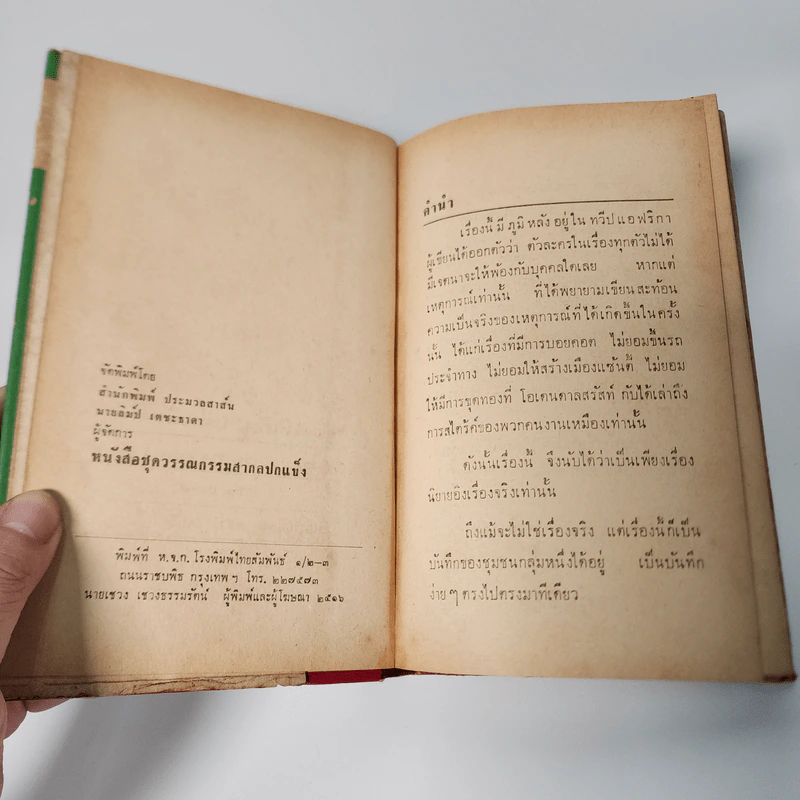 จัดพิมพ์โดย
สำนักพิมพ์ ประมวลสาส์น
นายลิมป์ เตชะธาดา
ผู้จัดการ
หนังสือชุดวรรณกรรมสากลปกแข็ง
พิมพ์ที่ ห.จ.ก. โรงพิมพ์ไทยสัมพันธ์ ๑/๒-๓
ถนนราชบพิธ กรุงเทพ ฯ โทร. ๒๒๗๕๗๓
นายเชวง เชวงธรรมรัตน์ ผู้พิมพ์และผู้โฆษณา ๒๕๑๖
คำนำ
เรื่องนี้ มี ภูมิ หลัง อยู่ ใน ทวีป แอฟริกา
ผู้เขียนได้ออกตัวว่า ตัวละครในเรื่องทุกตัวไม่ได้
มีเจตนาจะให้พ้องกับบุคคลใดเลย หากแต่
เหตุการณ์เท่านั้น ที่ได้พยายามเขียนสะท้อน
ความเป็นจริงของเหตุการณ์ที่ได้เกิดขึ้นในครั้ง
นั้น ได้แก่เรื่องที่มีการบอยคอต ไม่ยอมขึ้นรถ
ประจำทาง ไม่ยอมให้สร้างเมืองแซ้นตี้ ไม่ยอม
ให้มีการขุดทองที่ โอเดนดาลสรัสท์ กับได้เล่าถึง
การสไตร๊ค์ของพวกคนงานเหมืองเท่านั้น
ดังนั้นเรื่องนี้ จึงนับได้ว่าเป็นเพียงเรื่อง
นิยายอิงเรื่องจริงเท่านั้น
ถึงแม้จะไม่ใช่เรื่องจริง แต่เรื่องนี้ก็เป็น
บันทึกของชุมชนกลุ่มหนึ่งได้อยู่ เป็นบันทึก
ง่าย ๆ ตรงไปตรงมาทีเดียว